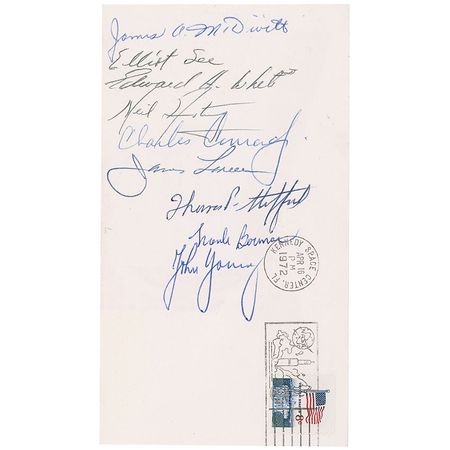 James A. McDivitt
Elliot See
Edward H. White II
Neil
Charles Conrad Jr.
James Lovell
Thomas P. Stafford
Frank Borman
John Young
KENNEDY SPACE CENTER, FL
APR 16
PM
1972
8c